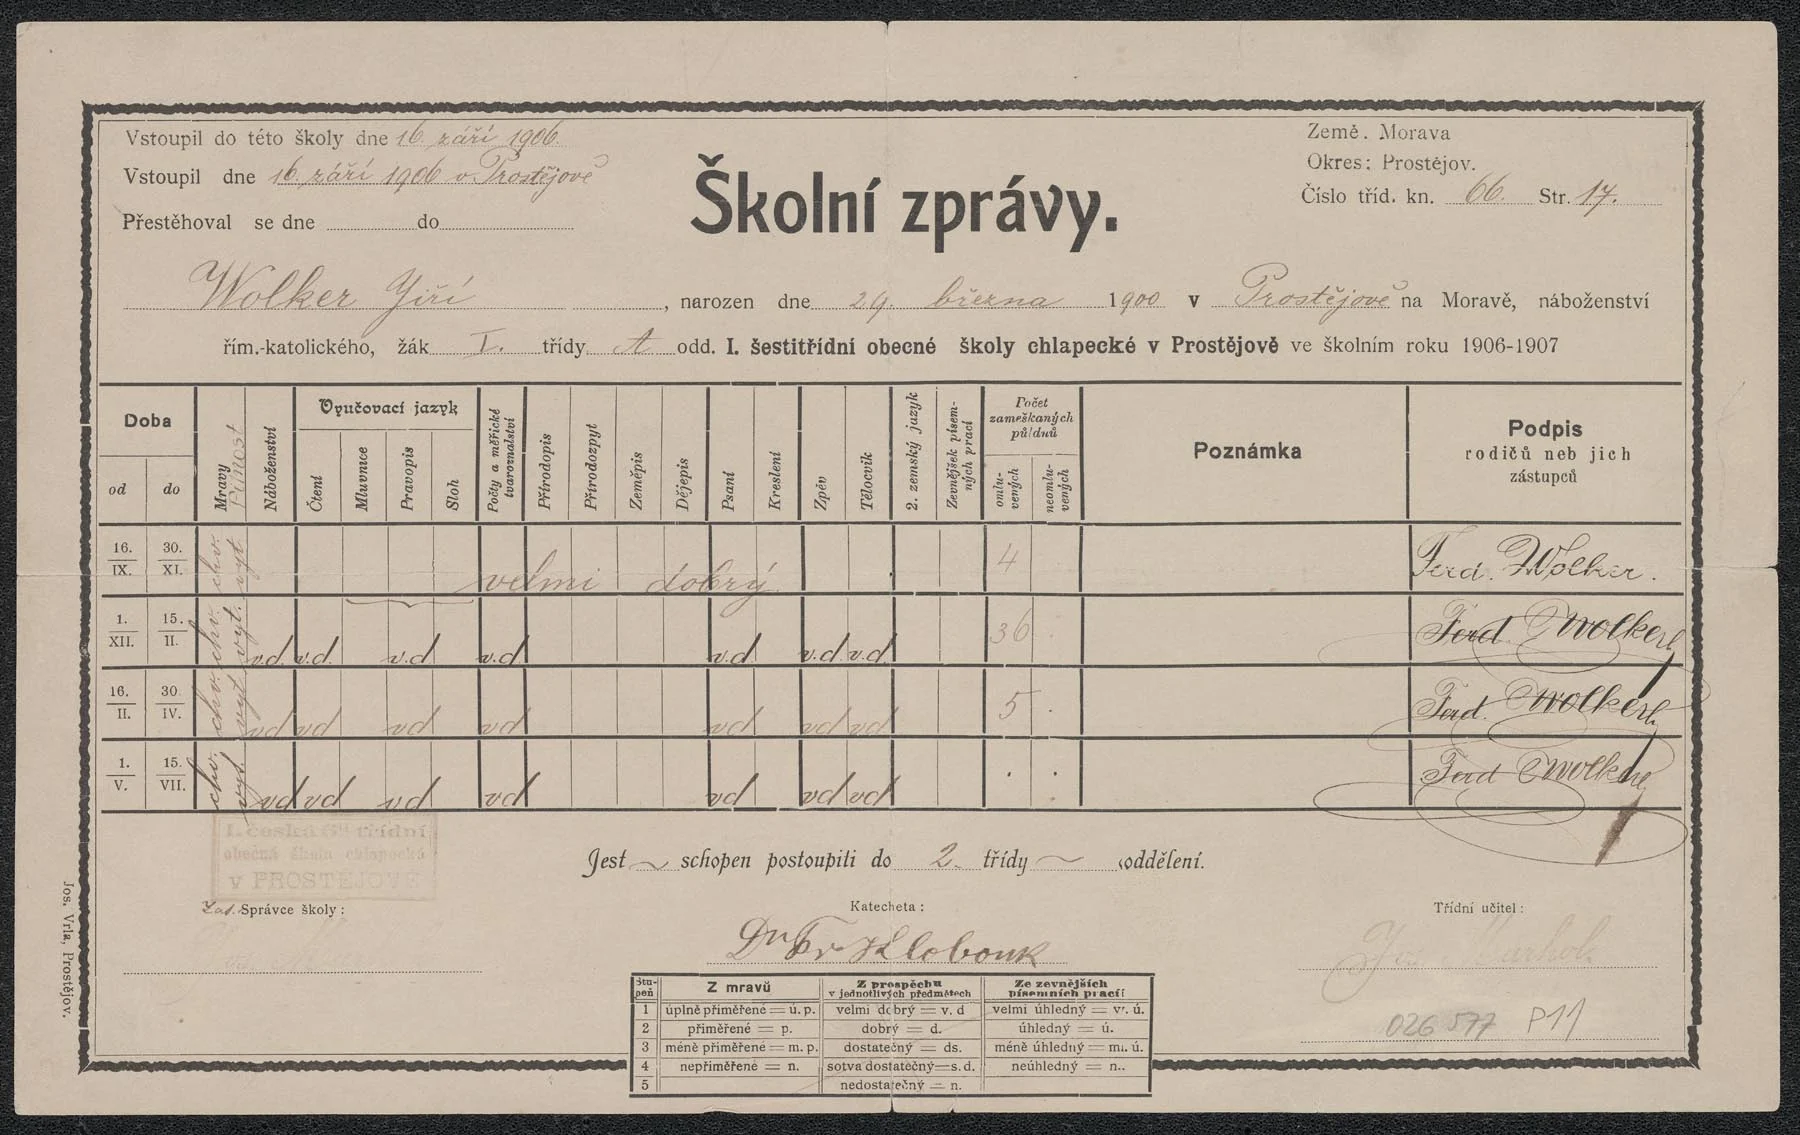 Vstoupil do této školy dne 16. září 1906.
Vstoupil dne 16. září 1906 v Prostějově
Přestěhoval se dne do
Školní zprávy.
Země. Morava
Okres: Prostějov.
Číslo tříd. kn. 66. Str. 17.
Wolker Jiří, narozen dne 29. března 1900 v Prostějově na Moravě, náboženství
řím.-katolického, žák I. třídy A odd. I. šestitřídní obecné školy chlapecké v Prostějově ve školním roku 1906-1907
Doba
od
do
Mravy
Pilnost
Náboženství
Vyučovací jazyk
Čtení
Mluvnice
Pravopis
Sloh
Počty a měřické tvaroznalství
Přírodopis
Přírodozpyt
Zeměpis
Dějepis
Psaní
Kreslení
Zpěv
Tělocvik
2. zemský jazyk
Zevnějšek písemných prací
Počet zameškaných půldnů
omluvených
neomluvených
Poznámka
Podpis
rodičů neb jich
zástupců
16. IX. 30. XI. chv. vyt. velmi dobrý 4 Ferd. Wolker.
1. XII. 15. II. chv. vyt. v.d. v.d. v.d v.d v.d v.d v.d 36 Ferd. Wolker
16. II. 30. IV. chv. vyt. vd vd vd vd vd vd vd 5 . Ferd. Wolker
1. V. 15. VII. chv. vyt. vd vd vd vd vd vd vd . . Ferd Wolker
I. česká 6ti třídní
obecná škola chlapecká
v PROSTĚJOVĚ
Jest schopen postoupiti do 2. třídy oddělení.
Zat. Správce školy:
Katecheta:
Třídní učitel:
Dr Fr Klobouk
Stupeň
Z mravů
Z prospěchu
v jednotlivých předmětech
Ze zevnějších
písemních prací:
1 úplně přiměřené = ú. p. velmi dobrý = v. d velmi úhledný = v. ú.
2 přiměřené = p. dobrý = d. úhledný = ú.
3 méně přiměřené = m. p. dostatečný = ds. méně úhledný = m. ú.
4 nepřiměřené = n. sotva dostatečný = s. d. neúhledný = n.
5 nedostatečný = n.
026 577 P11
Jos. Vrla, Prostějov.